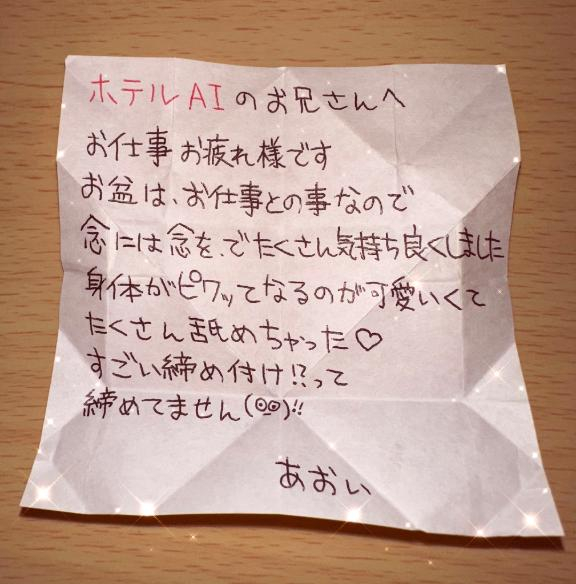 ホテルAIのお兄さんへ
お仕事お疲れ様です
お盆は、お仕事との事なので
念には念を、でたくさん気持ち良くしました
身体がピクッてなるのが可愛いくて
たくさん舐めちゃった♡
すごい締め付け!?って
締めてません(◎◎)!!
あおい